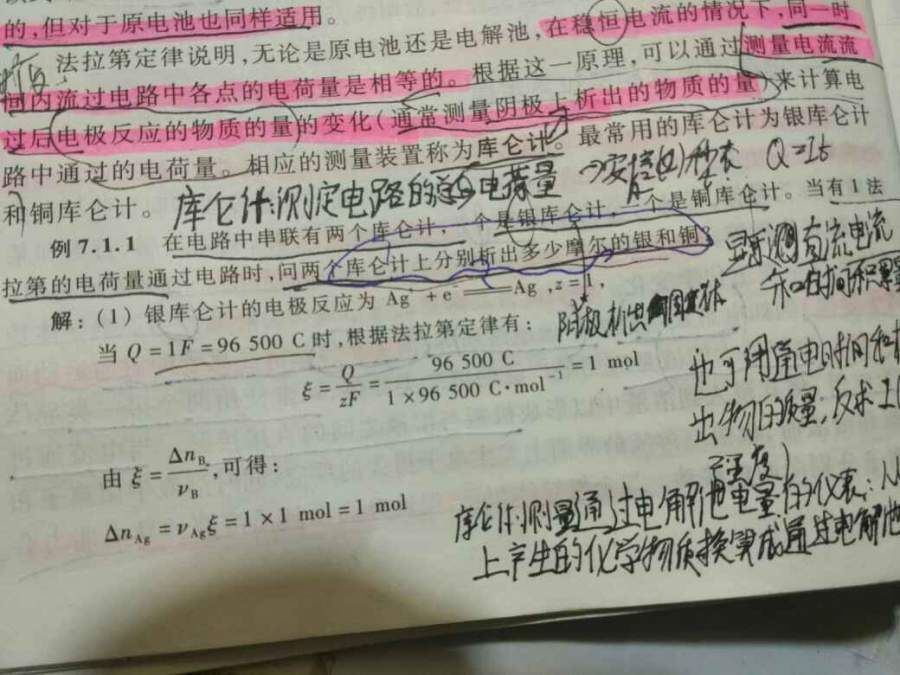 的,但对于原电池也同样适用。
法拉第定律说明,无论是原电池还是电解池,在稳恒电流的情况下,同一时
间内流过电路中各点的电荷量是相等的。根据这一原理,可以通过测量电流流
过后电极反应的物质的量的变化(通常测量阴极上析出的物质的量)来计算电
路中通过的电荷量。相应的测量装置称为库仑计。最常用的库仑计为银库仑计
和铜库仑计。
库仑计:测定电路的总电荷量
Q=It
例7.1.1 在电路中串联有两个库仑计,一个是银库仑计,一个是铜库仑计。当有1法
拉第的电荷量通过电路时,问两个库仑计上分别析出多少摩尔的银和铜?
直流电流
和时间积
解:(1) 银库仑计的电极反应为 Ag⁺ + e⁻ ═══ Ag ,z = 1,
阴极析出固体
当 Q = 1F = 96 500 C 时,根据法拉第定律有:
ξ = Q/zF = 96 500 C / 1 × 96 500 C·mol⁻¹ = 1 mol
也可用通电时间和
出物的质量,反求
由 ξ = Δn_B/ν_B,可得:
强度)
Δn_Ag = ν_Ag ξ = 1 × 1 mol = 1 mol
库仑计:测量通过电解池电量的仪表:
上产生的化学物质换算成通过电解池